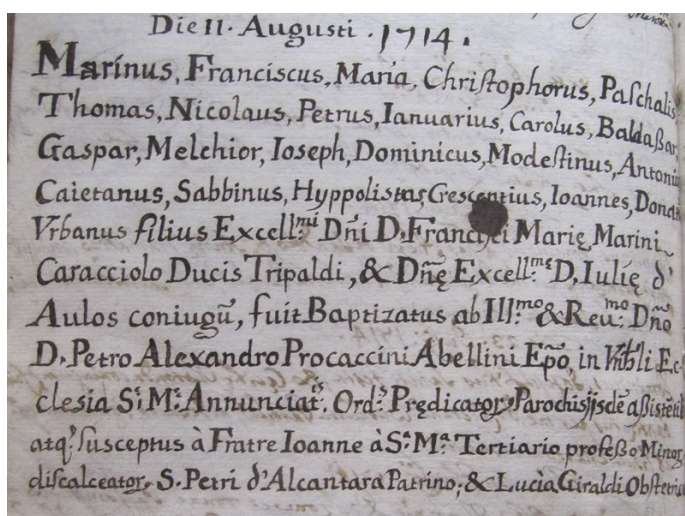 Die 11. Augusti . 1714.
Marinus, Franciscus, Maria, Chriſtophorus, Paſchalis
Thomas, Nicolaus, Petrus, Ianuarius, Carolus, Baldaßar
Gaspar, Melchior, Ioseph, Dominicus, Modeſtinus, Antonin
Caietanus, Sabbinus, Hyppolistus, Crescentius, Ioannes, Donat
Vrbanus filius Excell.mi Dñi D. Franciſci Marię Marini
Caracciolo Ducis Tripaldi, & Dñę Excell.mę D. Iulię d'
Aulos coniugũ, fuit Baptizatus ab Ill.mo & Reu.mo Dño
D. Petro Alexandro Procaccini Abellini Epõ, in Ec-
clesia S.ę M.ę Annunciat. Ord.s Prędicator, Parochis aßiſtẽtib
atq; ſusceptus à Fratre Ioanne à S.a M.a Tertiario profeßo Minor
diſcalceator. S. Petri d'Alcantara Patrino; & Lucia Giraldi Obſtetric